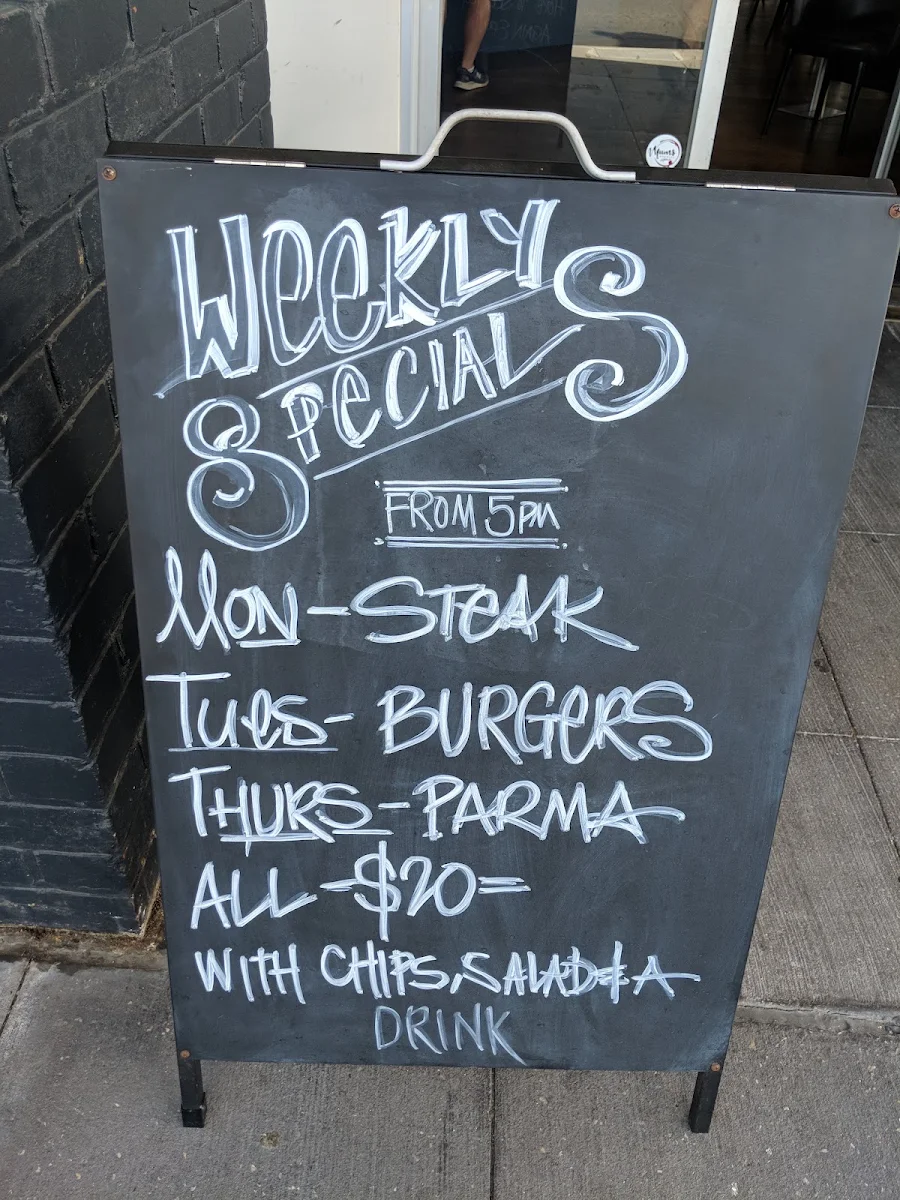 WEEKLY
SPECIALS
FROM 5PM
MON - STEAK
TUES - BURGERS
THURS - PARMA
ALL - $20 =
WITH CHIPS, SALAD & A
DRINK